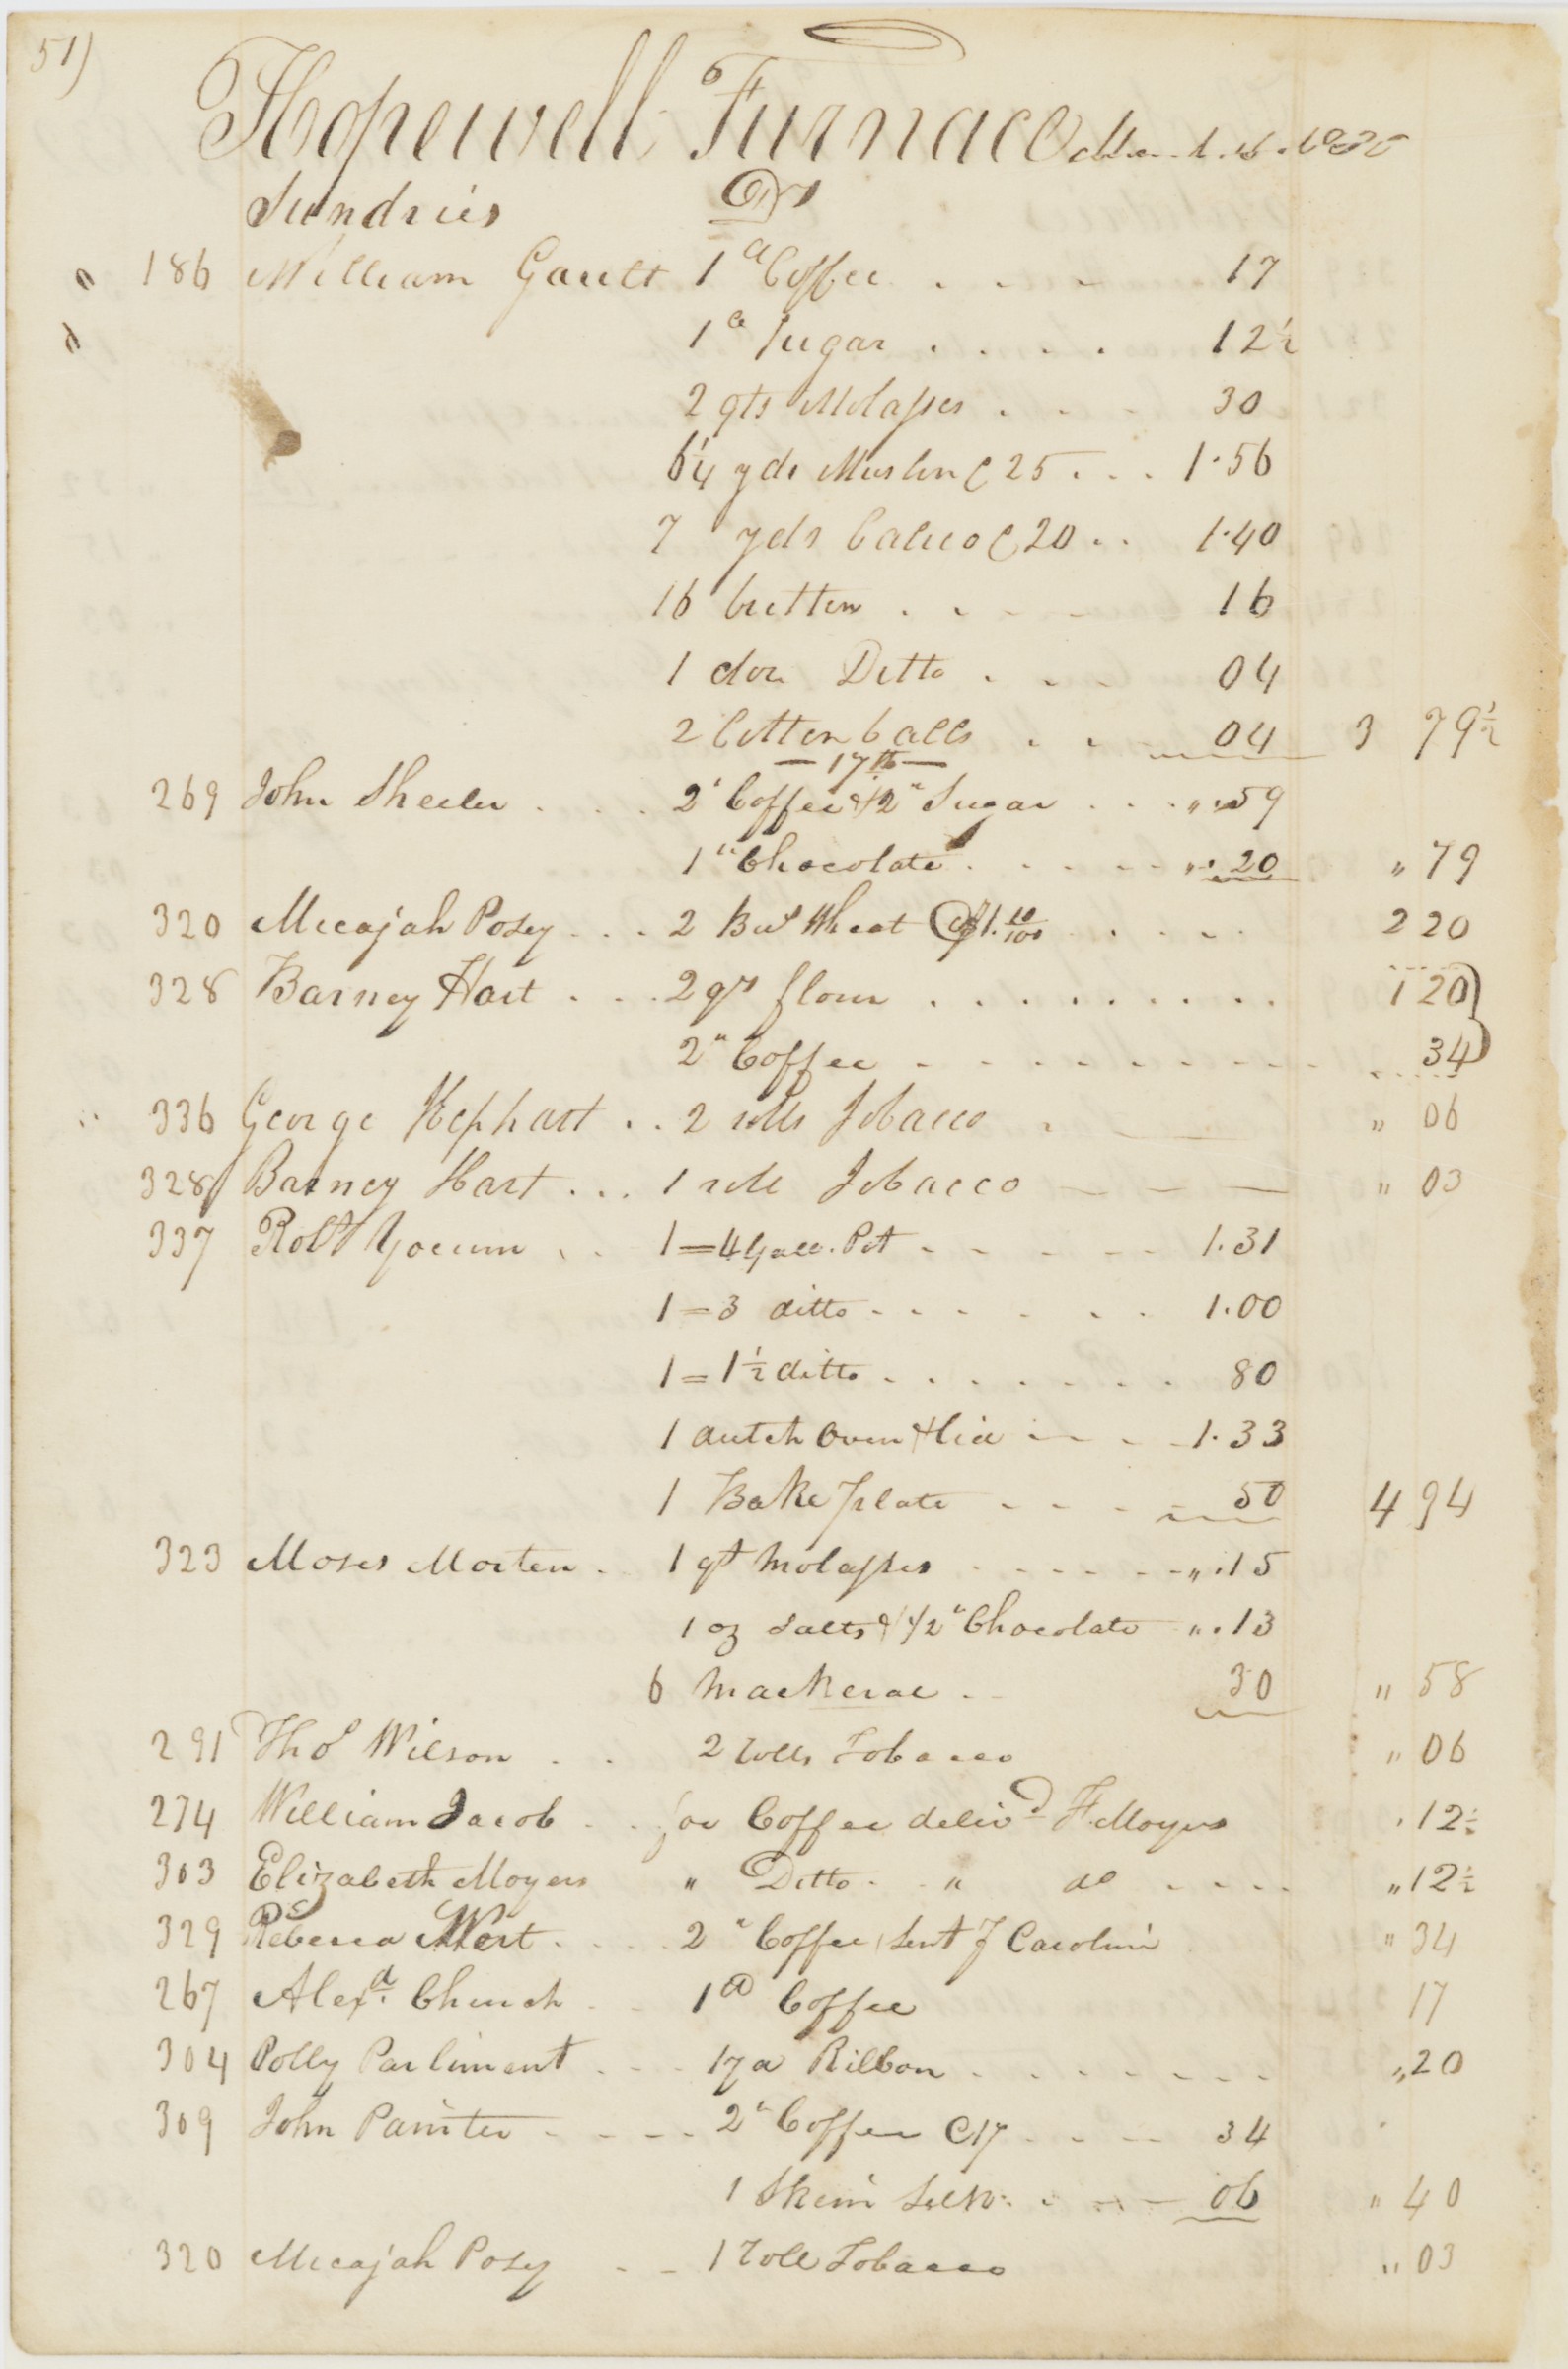 51)
Hopewell Furnace
Sundries Drs
186 William Gault 1 ℔ Coffee . . . . 17
1 ℔ Sugar . . . . 12½
2 qts Molasses . . . 30
6¼ yds Muslin @ 25 . . . 1.56
7 yds Calico @ 20 . . 1.40
16 button . . . . 16
1 doz Ditto . . . 04
2 Cotten balls . . . 04 3 79½
— 17th —
269 John Sheeler . . . 2 " Coffee & 2 " Sugar . . . " . 59
1 " Chocolate . . . . . " . 20 " 79
320 Micajah Posey . . . 2 Bus Wheat @ $1. 10/100 . . . . . 2 20
328 Barney Hart . . . 2 qrs flour . . . . . . . . . 1 20)
2 " Coffee . . . . . . . . . . 34)
336 George Kephart . . 2 rolls Tobacco . — — " 06
328 Barney Hart . . . 1 role Tobacco — — — " 03
337 Robt Yocum . . 1 = 4 Gall. Pot . . . . . . 1.31
1 = 3 ditto . . . . . . . 1.00
1 = 1½ ditto . . . . . . . 80
1 dutch Oven & lid . . . 1.33
1 Bake plate . . . . 50 4 94
323 Moses Morten . 1 qt Molasses . . . . . . " . 15
1 oz Salts & 1/2 " Chocolate " . 13
6 Mackerae . . 30 " 58
291 Thos Wilson . . 2 rolls Tobacco " 06
274 William Jacob . . for Coffee delivd F. Moyers . 12½
303 Elizabeth Moyers " Ditto . . " do . . . . " 12½
329 Rebecca Wert . . . . 2 " Coffee sent J Carolini " 34
267 Alexd. Church . . 1 ℔ Coffee 17
304 Polly Parliment . . . 1 yd Ribbon . . . . . . . " 20
309 John Painter . . . . 2 " Coffee @ 17 . . . 34
1 Skein Silk . . . . 06 " 40
320 Micajah Posey . . 1 roll Tobacco " 03